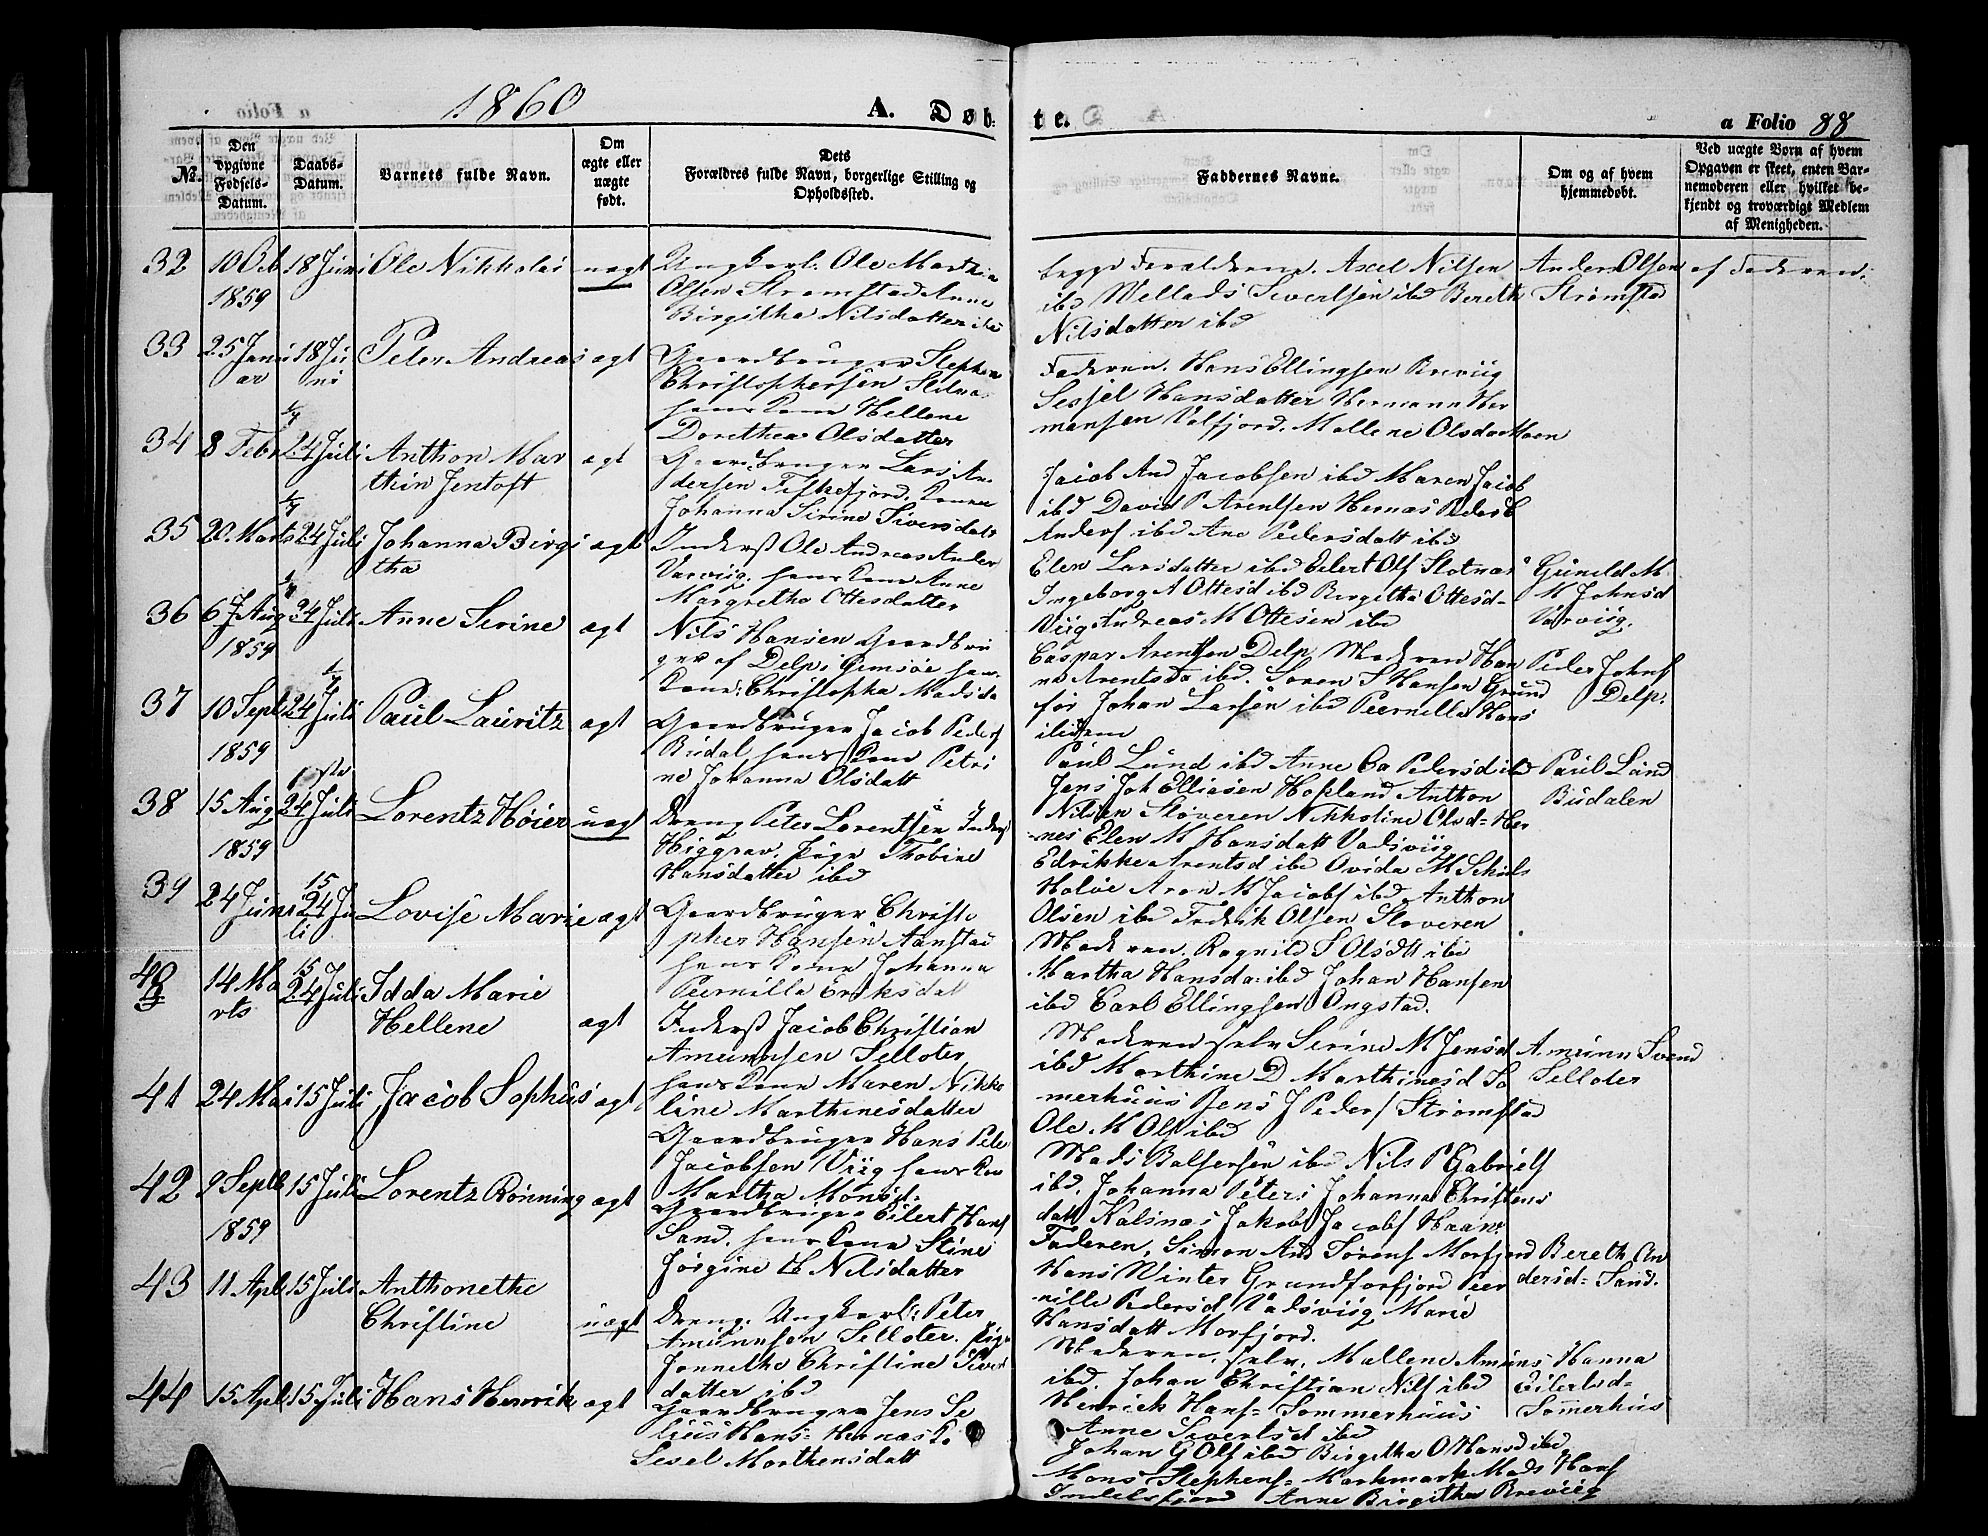 1860
A. Døb:
te.
a Folio 88
No.
Den opgivne Fødsels-Datum.
Daabs-Datum.
Barnets fulde Navn.
Om ægte eller uægte født.
Dets Forældres fulde Navn, borgerlige Stilling og Opholdssted.
Faddernes Navne.
Om og af hvem hjemmedøbt.
Ved uægte Børn af hvem Opgaven er skeet, enten Barnemoderen eller hvilket bekjendt og troværdigt Medlem af Menigheden.
32 10 Octb 1859 18 Juni Ole Nikkolai uægt
Ungkarl: Ole Marthin
Olsen Strømstad Anne
Birgitha Nilsdatter ibd
begge Forældrene. Axel Nilsen
ibd Mellads Sivertsen ibd Bereth
Nilsdatter ibd
Anders Olsen
Strømstad
af Faderen.
33 25 Januar 18 Juni Peter Andreas ægt
Gaardbruger Stephen
Christophersen
hans Kone Hellene
Dorethea Olsdatter
Faderen. Hans Ellingsen Breviig
Sessel Hansdatter Hermann Her
mansen Valfjord. Mallene Olsdatt
34 8 Febr 24 Juli Anthon Mar
thin Jentoft ægt
Gaardbruger Lars An
dersen Fiskefjord. Konen
Johanna Sirine Siversdatt
Jacob And Jacobsen ibd Maren Jacob
ibd David P Arentsen Hernæs Peder
Anders ibd Ane Pedersdatt ibd
35 20 Marts 24 Juli Johanna Birgi
tha ægt
Inderst Ole Andreas Ander
Varviig. hans Kone Anne
Margretha Ottesdatter
Elen Larsdatter ibd Eilert Ols Slotnæs
Ingeborg A Ottesd ibd Birgitha Ottesd-
Viig Andreas M Ottesen ibd
Gunild M
M Johnsd
Varviig.
36 6 Aug 1859 24 Juli Anne Serine ægt
Nils Hansen Gaardbru
ger af Delp i Gimsøe hans
Kone: Christopha Madsda
Caspar Arentsen Delp Moderen Han
na Arentsda ibd. Soren S Hansen Grund
for Johan Larsen ibd Peernille Hans
ibidem
Peder Johns
Delp.
37 10 Septb 1859 24 Juli Paul Lauritz ægt
Gaardbruger Jacob Peders
Budal hans Kone Petri
ne Johanna Olsdatt
Paul Lund ibd Anne Ca Pedersd ibd
Jens Joh Elliesen Hopland Anthon
Nilsen Sloveren Nikkoline Olsd- Her
nes Elen M Hansdatt Vadsviig
Paul Lund
Budalen
38 15 Aug 1859 24 Juli Lorentz Høier uægt
Dreng Peter Lorentsen Inders
Higgrav. Pige Thobine
Hansdatter ibd
Edrikke Arentsd ibd Ovida M Schiels
Holøe Aron M Jacobs ibd Anthon
Olsen ibd Fredrik Olsen Sloveren
39 24 Juni 15 Juli Lovise Marie ægt
Gaardbruger Christo
pher Hansen Aanstad
hans Kone Johanna
Peernilla Eriksdat
Moderen. Ragnild S Olsdtt ibd
Martha Hansda: ibd Johan Hansen
ibd Carl Ellingsen Ongstad.
40 14 Marts 15 Juli Idda Marie
Hellene ægt
Inderst Jacob Christian
Amunnsen Selloter
hans Kone Maren Nikko
line Marthinesdatter
Moderen selv Serine M Jensd
ibd Marthine D Marthinesd So
merhuus Jens J Peders Strømstad
Ole M Ols ibd
Amunn Svend
Selloter
41 24 Mai 15 Juli Jacob Sophus ægt
Gaardbruger Hans Pete
Jacobsen Viig hans Kon
Martha Monsd.
Mads Balsersen ibd Nils P Gabriels
ibd. Johanna Peters Johanna Christens
datt Kalsnæs Jakob Jacobs Haanæ
42 2 Septb 1859 15 Juli Lorentz Rönning ægt
Gaardbruger Eilert Hans
Sand. hans Kone Stine
Jørgine H Nilsdatter
Faderen, Simon And Sørens Morfjord
Hans Winter Grundforfjord Peer
nille Pedersd Vadsviig Marie
Hansdatt Morfjord.
Bereth An
dersd- Sand.
43 11 Apl 15 Juli Anthonethe
Christine uægt
Dreng. Ungkarl: Peter
Amunnsen Selloter. Pige
Jonnetha Christine Siverts
datter ibd
Moderen. selv. Mallene Amuns
ibd. Johan Christian Nils ibd
Henrich Hans- Sommerhuus
Anne Sivertsd ibd
Hanna
Eilertsd-
Somerhus
44 15 Apl 15 Juli Hans Henrik ægt
Gaardbruger Jens Se
lius Hans- Hernæs Ko
Sesel Morthensdatt
Johan G Ols ibd Birgitha O Hansd ibd
Mons Stephens- Markmark Mads Hans
Indelsfjord Anne Birgitha Breviig